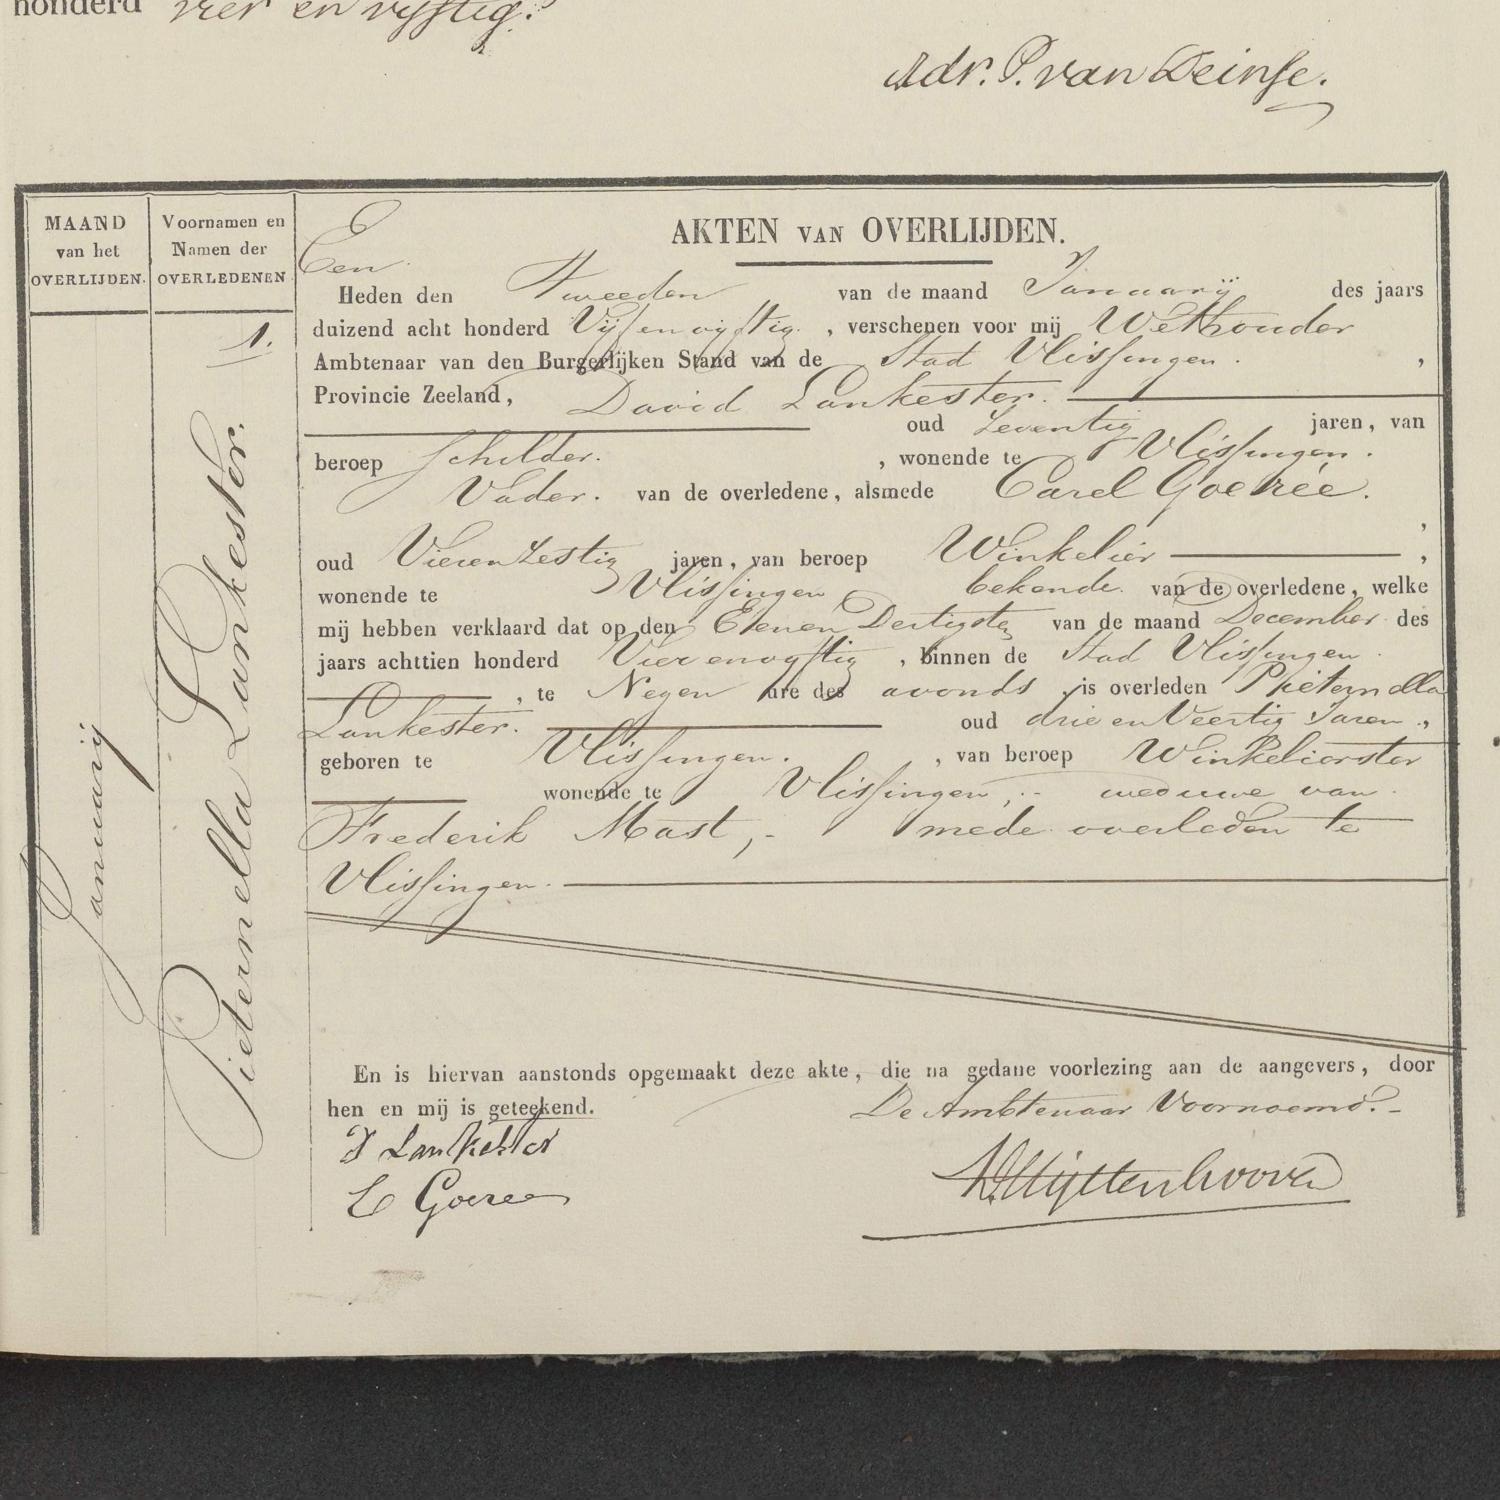 honderd vier en vijftig.
Adr. P. van Deinse.
MAAND
van het
OVERLIJDEN.
Voornamen en
Namen der
OVERLEDENEN
Januarij
1.
Pieternella Lankester.
AKTEN VAN OVERLIJDEN.
Een
Heden den Tweeden van de maand Januarij des jaars
duizend acht honderd Vijf en vijftig. , verschenen voor mij Wethouder
Ambtenaar van den Burgerlijken Stand van de Stad Vlissingen. ,
Provincie Zeeland, David Lankester.
oud Zeventig jaren, van
beroep Schilder. , wonende te Vlissingen.
Vader. van de overledene, alsmede Carel Goetrée.
,
oud Vieren Zestig jaren, van beroep Winkelier ,
wonende te Vlissingen, bekende van de overledene, welke
mij hebben verklaard dat op den Eenen Dertigste van de maand December des
jaars achttien honderd Vier en vyftig , binnen de Stad Vlissingen.
, te Negen ure des avonds , is overleden Pieternella
Lankester. oud drie en Veertig Jaren ,
geboren te Vlissingen. , van beroep Winkelierster
wonende te Vlissingen, weduwe van
Frederik Mast, mede overleden te
Vlissingen.
En is hiervan aanstonds opgemaakt deze akte, die na gedane voorlezing aan de aangevers, door
hen en mij is geteekend. De Ambtenaar Voornoemd.
D Lankester
C Goeree